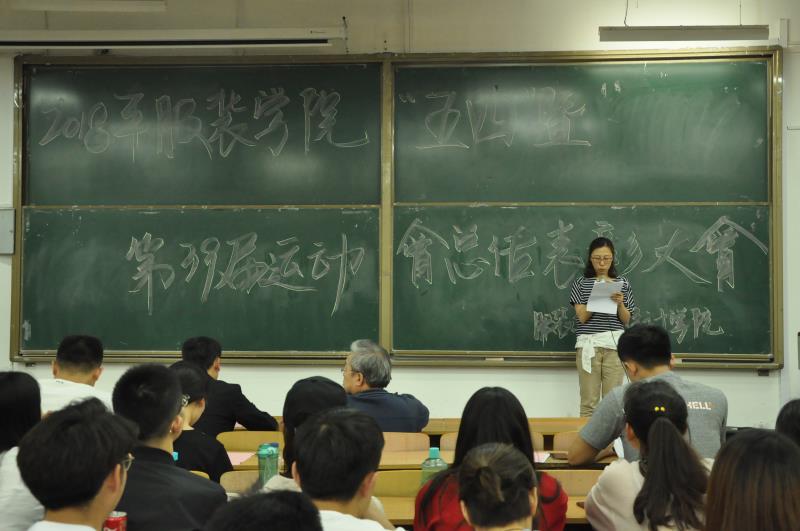 2018年服装学院 “五四暨”
第39届运动會总结表彰大會
服装 计学院
HELL